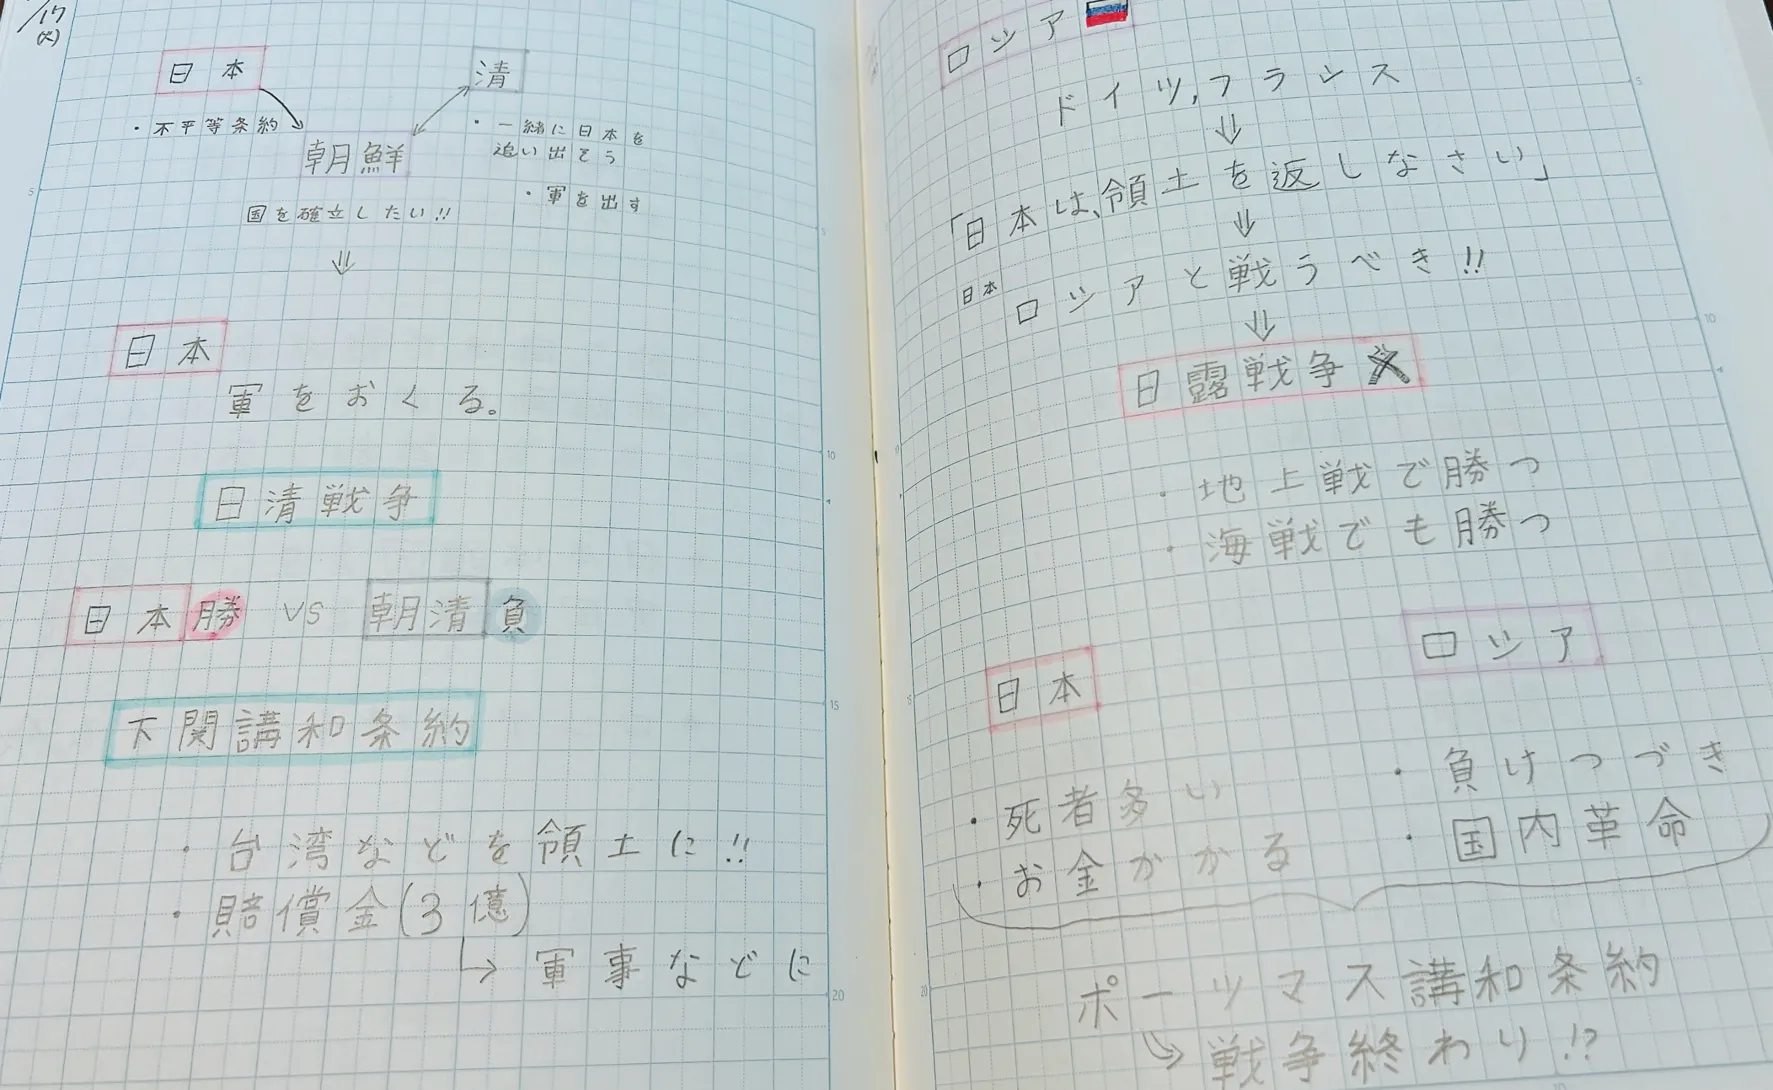 /17
(火)
日本
清
・不平等条約
・一緒に日本を
追い出そう
朝鮮
・軍を出す
国を確立したい!!
⇓
日本
軍をおくる。
日清戦争
日本勝 VS 朝清負
下関講和条約
・台湾などを領土に!!
・賠償金(3億)
→軍事などに
ロシア
ドイツ,フランス
⇓
「日本は、領土を返しなさい」
⇓
日本 ロシアと戦うべき!!
⇓
日露戦争
・地上戦で勝つ
・海戦でも勝つ
日本
・死者多い
・お金かかる
ロシア
・負けつづき
・国内革命
ポーツマス講和条約
→戦争終わり!?